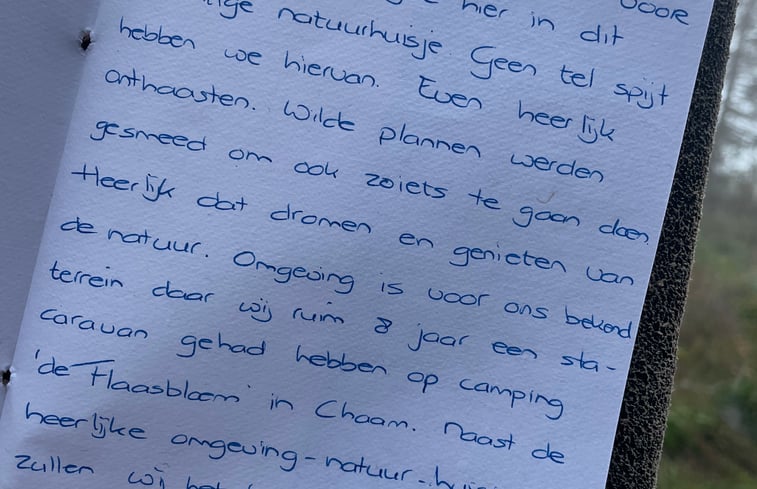 hier in dit
natuurhuisje. Geen tel spijt
hebben we hiervan. Even heerlijk
onthaasten. Wilde plannen werden
gesmeed om ook zoiets te gaan doen.
Heerlijk dat dromen en genieten van
de natuur. Omgeving is voor ons bekend
terrein daar wij ruim 8 jaar een sta-
caravan gehad hebben op camping
'de Flaasbloem' in Chaam. Naast de
heerlijke omgeving-natuur-
zullen wij